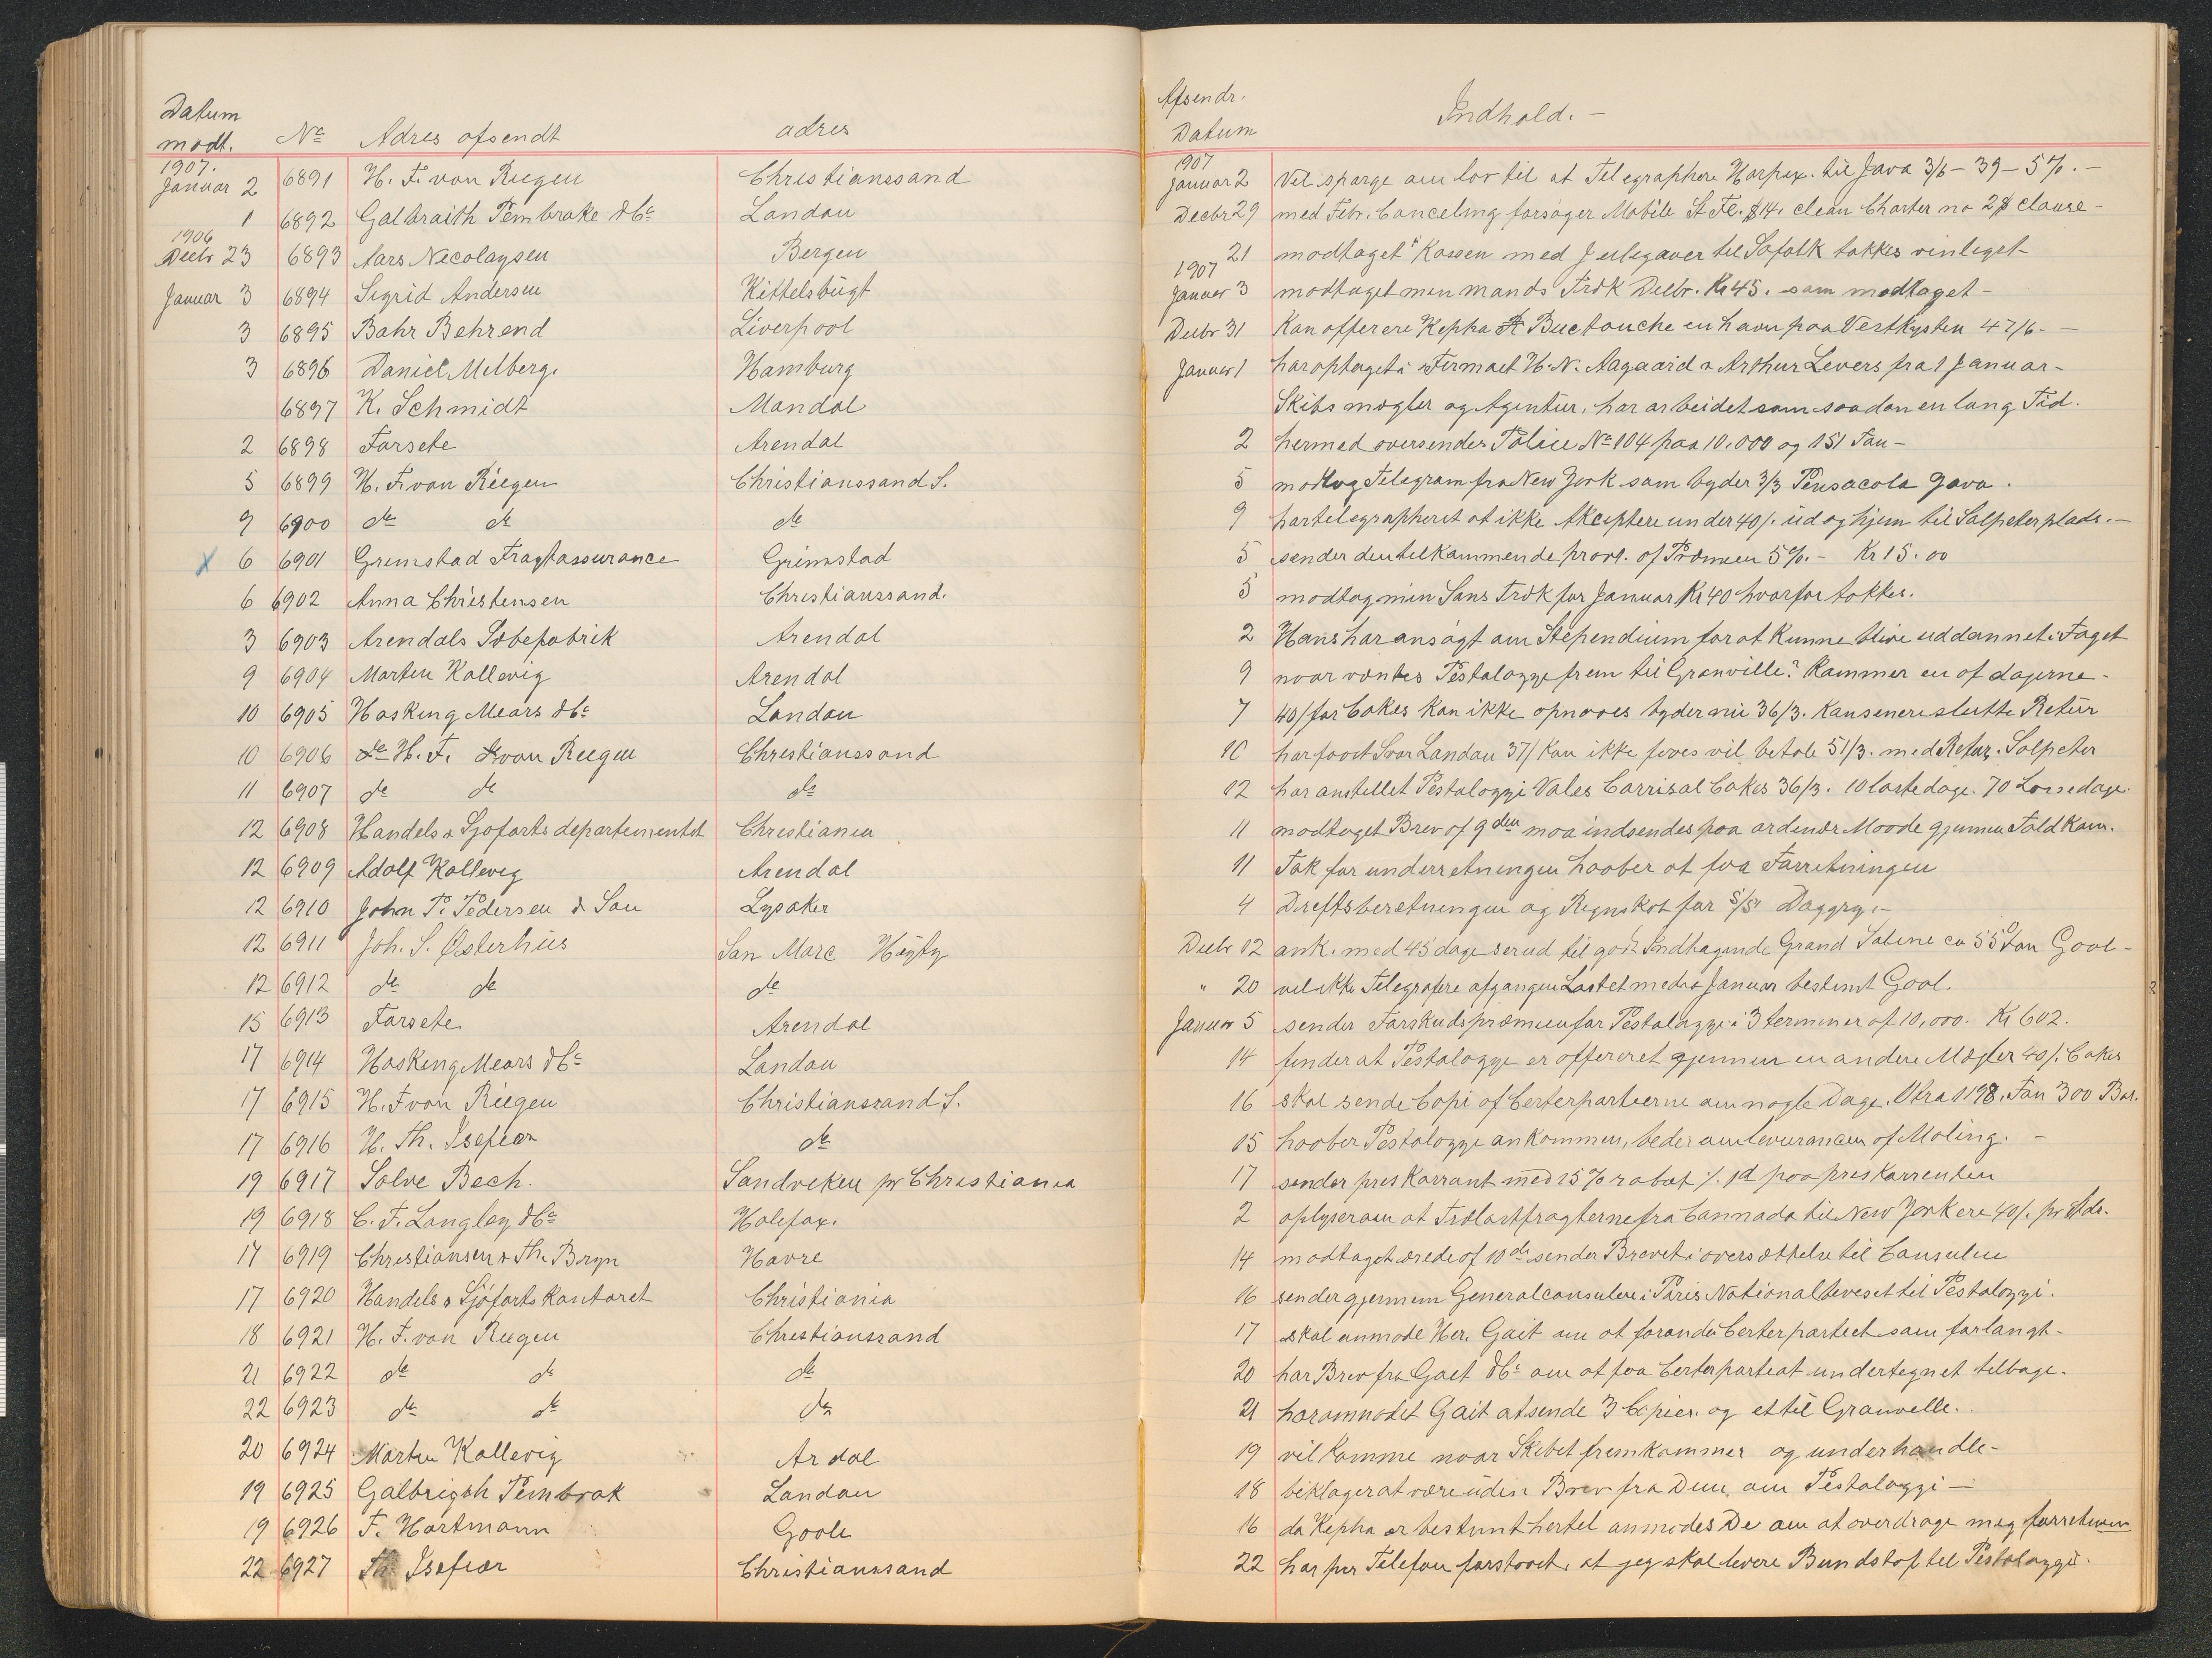 Datum
modt. No Adres afsendt adres Afsendr. Datum Indhold. -
1907. Januar 2 6891 H. F. von Riegen Christianssand 1907 Januar 2 Vil spørge om lov til at Telegraphere Harpex. til Java 3/6 - 39 - 5%. -
1 6892 Galbraith Pembroke & Co London Decbr 29 med Febr. Canceling forsøger Mobile St Fe. $14. clean Charter no 2$ clause -
1906 Decbr 23 6893 Aars Nicolaysen Bergen 21 modtaget Kassen med Julegaver til Safatk takkes venligst -
Januar 3 6894 Sigrid Andersen Kittelsbugt 1907 Januar 3 modtaget min mands Træk Decbr. Kr 45. som modtaget -
3 6895 Bahr Behrend Liverpool Decbr 31 Kan offerere Kepha Buctouche en havn paa Vestkysten 47/6 - -
3 6896 Daniel Milberg. Hamburg Januar 1 har optaget i Firmaet H. N. Aagaard & Arthur Levers fra 1 Januar -
6897 K. Schmidt Mandal Skibsmægler og Agentur, har arbeidet som saadan en lang Tid.
2 6898 Farsete Arendal 2 hermed oversendes Police No 104 paa 10.000 og 151 Ton -
5 6899 H. F. von Riegen Christianssand S. 5 modtog Telegram fra New York som byder 3/3 Pensacola Java.
9 6900 do do do 9 har telegrapheret at ikke Akceptere under 40/. ud og hjem til Salpeterplads. -
x 6 6901 Grimstad Fragtassurance Grimstad 5 sender den tilkommende provi. af Præmien 5%. - Kr 15.00
6 6902 Anna Christensen Christianssand. 5 modtog min Søns Træk for Januar Kr 40 hvorfor takkes.
3 6903 Arendals Sæbefabrik Arendal 2 Hans har ansøgt om Stependium for at kunne blive uddannet i Faget
9 6904 Morten Kallevig Arendal 9 naar ventes Pestalozzi frem til Granville? Kommer en af dagerne -
10 6905 Hasking Mears & Co London 7 40/ for Cokes kan ikke opnaaes byder nu 36/3. Kan senere slutte Retur
10 6906 H. F. von Riegen Christianssand 10 har faaet Svar London 37/ kan ikke faaes vil betale 51/3. med Retur. Salpeter
11 6907 do do do 12 har anstillet Pestalozzi Vales Carrisal Cokes 36/3. 10 lastedage. 70 Lossedage.
12 6908 Handels & Sjøfartsdepartementet Christiania 11 modtaget Brev af 9 den maa indsendes paa ordinær Maade gjennem Toldkam.
12 6909 Adolf Kallevig Arendal 11 Tak for underretningen haaber at faa Forretningen
12 6910 John P. Pedersen & Søn Lysaker 4 Driftsberetningen og Regnskab for S/S. Daggry. -
12 6911 Joh. S. Østerhus San Marc Hayty Decbr 12 ank. med 45 dage serud til godt Indtagende Grand Saline ca 550 Ton Gool -
12 6912 do do do " 20 vil ikke Telegrafere afgangen Lastet medio Januar bestemt Gool.
15 6913 Farsete Arendal Januar 5 sender Forskudspræmien for Pestalozzi i 3 terminer af 10,000. Kr 602.
17 6914 Hasking Mears & Co London 14 finder at Pestalozzi er offereret gjennem en anden Mægler 40/. Cokes
17 6915 H. F. von Riegen Christianssand S. 16 skal sende Copi af Certepartierne om nogle Dage. Ultra 1198. Ton 300 Bar.
17 6916 H. Th. Isefiær do 15 haaber Pestalozzi ankommen, beder om leverancen af Maling. -
19 6917 Salve Bech. Sandviken pr Christiania 17 sender priskorrant med 15% rabat ⁒ 1d paa priskorrenten
19 6918 C. F. Longley & Co Halifax. 2 oplyser om at Trælastfragterne fra Cannada til New York ere 40/. pr Stds.
17 6919 Christiansen & Th. Bryn Havre 14 modtaget ærede af 10 de sender Brevet i oversættelse til Consulen
17 6920 Handels & Sjøfartskontoret Christiania 16 sender gjennem Generalconsulen i Paris Nationalbeviset til Pestalozzi.
18 6921 H. F. von Riegen Christianssand 17 skal anmode Her. Gait om at forandre Certepartiet som forlangt -
21 6922 do do do 20 har Brev fra Gaet & Co om at faa Certepartiat undertegnet tilbage.
22 6923 do do do 21 har anmodet Gait at sende 3 Copier. og et til Granville.
20 6924 Morten Kallevig Ardal 19 vil komme naar Skibet fremkommer og underhandle -
19 6925 Galbrigth Pembrok London 18 beklager at være uden Brev fra Dem. om Pestalozzi -
19 6926 F. Hartmann Goole 16 da Kepha er bestemt hertil anmodes De om at overdrage mig forretnin
22 6927 Th. Isefiær Christianssand 22 har per Telefon forstaaet. at jeg skal levere Bundstof til Pestalozzi.